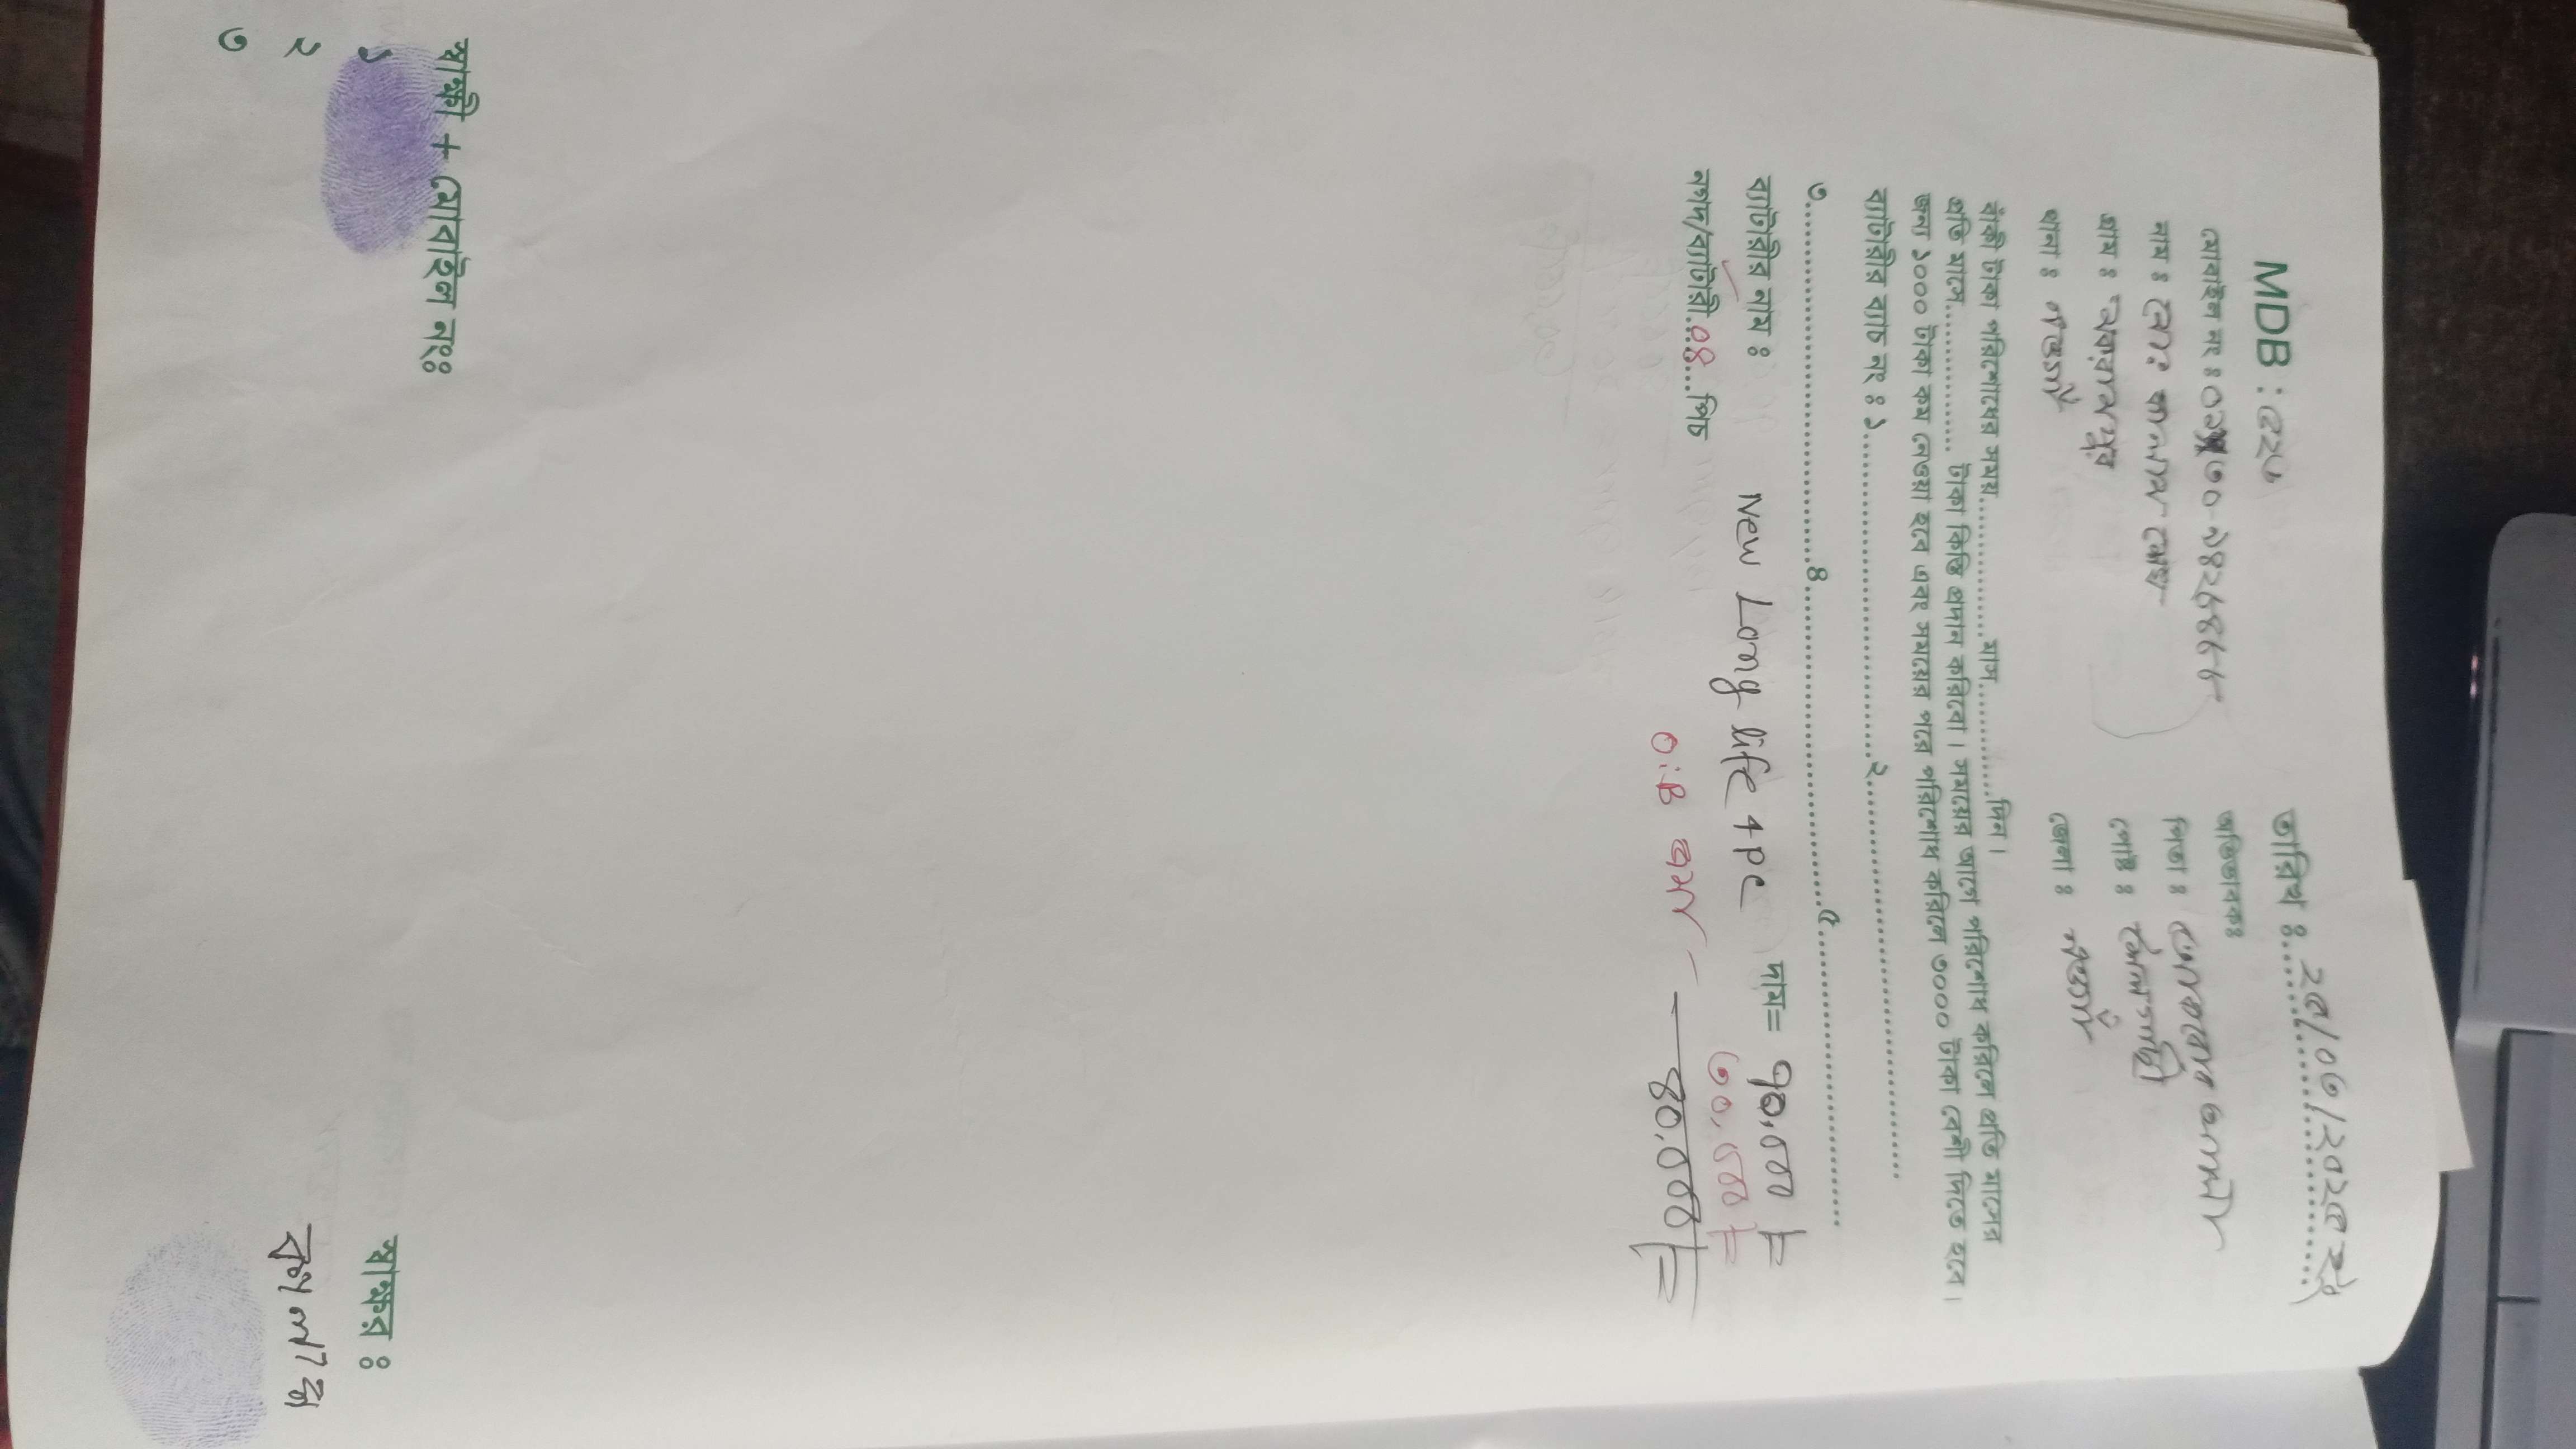 MDB : ৫২৮ তারিখ ঃ ২৫/০৩/২০২৫ ইং
মোবাইল নং ঃ অভিভাবকঃ
নাম ঃ মোঃ কালাম শেখ পিতা ঃ
গ্রাম ঃ আকরামপুর পোষ্ট ঃ
থানা ঃ নওগাঁ জেলা ঃ নওগাঁ
বাকী টাকা পরিশোধের সময়..............মাস..............দিন।
প্রতি মাসে.............. টাকা কিস্তি প্রদান করিবো। সময়ের আগে পরিশোধ করিলে প্রতি মাসের
জন্য ১০০০ টাকা কম নেওয়া হবে এবং সময়ের পরে পরিশোধ করিলে ৩০০০ টাকা বেশী দিতে হবে।
ব্যাটারীর ব্যাচ নং ঃ ১..............২..............
৩..............৪..............৫..............
ব্যাটারীর নাম ঃ New Long life 4 pc দাম= ৭০,০০০/=
নগদ/ব্যাটারী..০৪...পিচ ৩০,০০০/=
O:B বাদ — ৪০,০০০/=
স্বাক্ষী + মোবাইল নংঃ স্বাক্ষর ঃ
১
২
৩